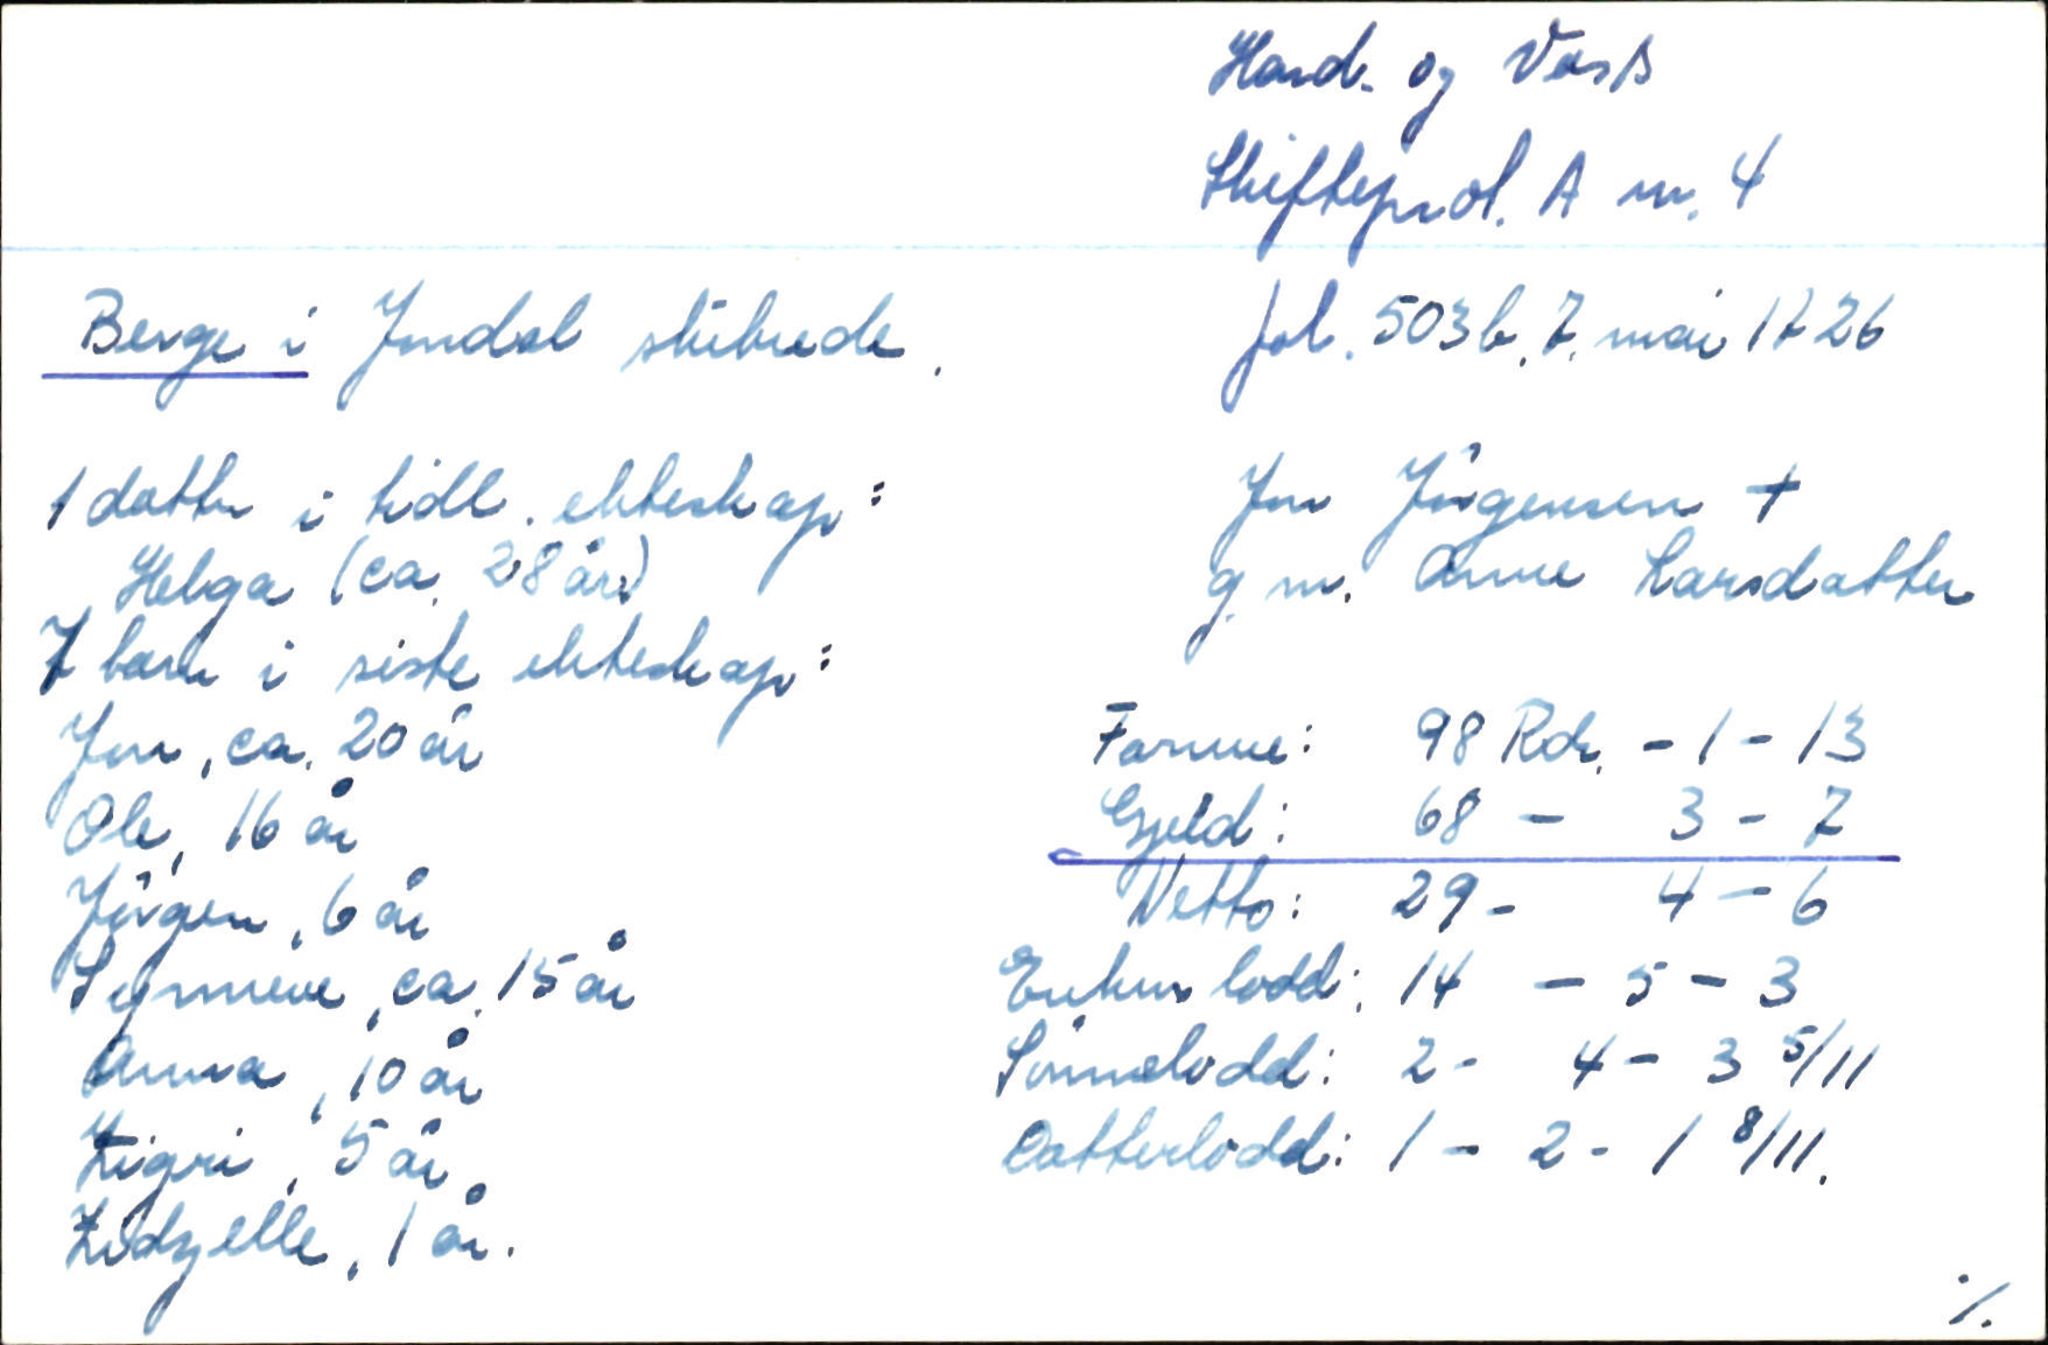 Hard. og Voss
Skifteprot. A nr. 4
Berge i Jondal skibrede.
fol. 503b, 7. mai 1726
1 datter i tidl. ekteskap:
Helga (ca. 28 år)
7 barn i siste ekteskap:
Jon, ca. 20 år
Ole, 16 år
Jörgen, 6 år
Synneve, ca. 15 år
Anna, 10 år
Zigri, 5 år
1 år.
Jon Jörgensen +
g. m. Anne Larsdatter
Formue: 98 Rdr. - 1 - 13
Gjeld: 68 - 3 - 7
Netto: 29 - 4 - 6
Enkens lodd: 14 - 5 - 3
Sönnelodd: 2 - 4 - 3 5/11
Datterlodd: 1 - 2 - 1 8/11.
./.